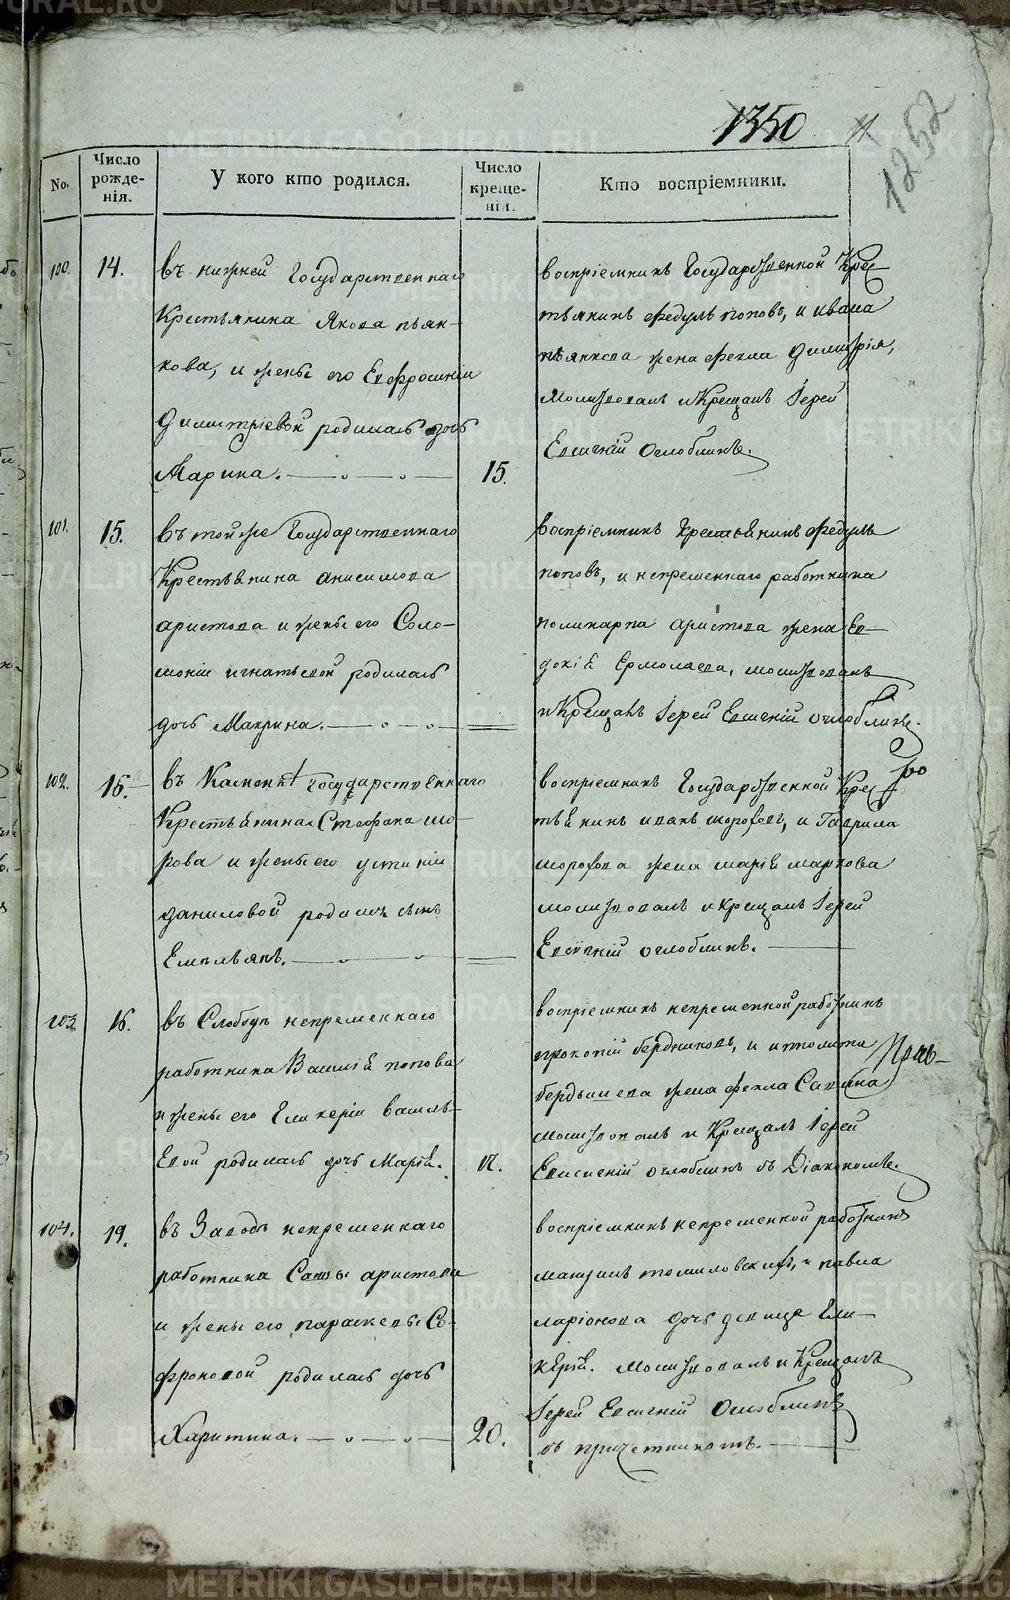 1350
11
1252
No.
Число рожде-нія.
У кого кто родился.
Число креще-нія.
Кто воспріемники.
100.
14.
въ нижней Государственнаго
Крестьянина Якова пьян-
кова, и жены его Евфросиніи
Димитріевой родилась дочь
Марина.
15.
воспріемникъ Государственной Крес-
тьянинъ Федулъ поповъ, и ивана
пьянкова жена Фекла Димитрія,
молитвовалъ и Крещалъ Іерей
Евгеній Оглоблинъ.
101.
15.
въ той же Государственнаго
Крестьянина анисимова
аристова и жены его Соло-
моніи игнатьевой родилась
дочь Макрина.
воспріемникъ Крестьянинъ Федулъ
поповъ, и непременнаго работника
поликарпа аристова жена Ев-
докія Ермолаева, молитвовалъ
и Крещалъ Іерей Евгеній Оглоблинъ.
102.
16.
въ Каменкѣ Государственнаго
Крестьянина Стефана
рова и жены его устиніи
даниловой родился сынъ
Емельянъ.
воспріемникъ Государственной Крес-
тьянинъ иванъ и Гаврила
жена марія маркова
молитвовалъ и крещалъ Іерей
Евгеній оглоблинъ.
103.
16.
въ Слободѣ непременнаго
работника Василія попова
и жены его Гликеріи василь-
Евой родилась дочь Марія.
17.
воспріемникъ непременной работникъ
прокопій бердниковъ, и ипполита
бердышева жена фекла Савина
молитвовалъ и Крещалъ Іерей
Евгеній оглоблинъ съ Діакономъ.
104.
19.
въ Заводѣ непременнаго
работника Саввы аристова
и жены его параскевы Со-
фроновой родилась дочь
Харитина.
20.
воспріемникъ непременной работникъ
томиловскихъ, и павла
ларіонова дочь девица Гли-
керія. Молитвовалъ и Крещалъ
Іерей Евгеній Оглоблинъ
съ причетникомъ.
METRIKI.GASO-URAL.RU